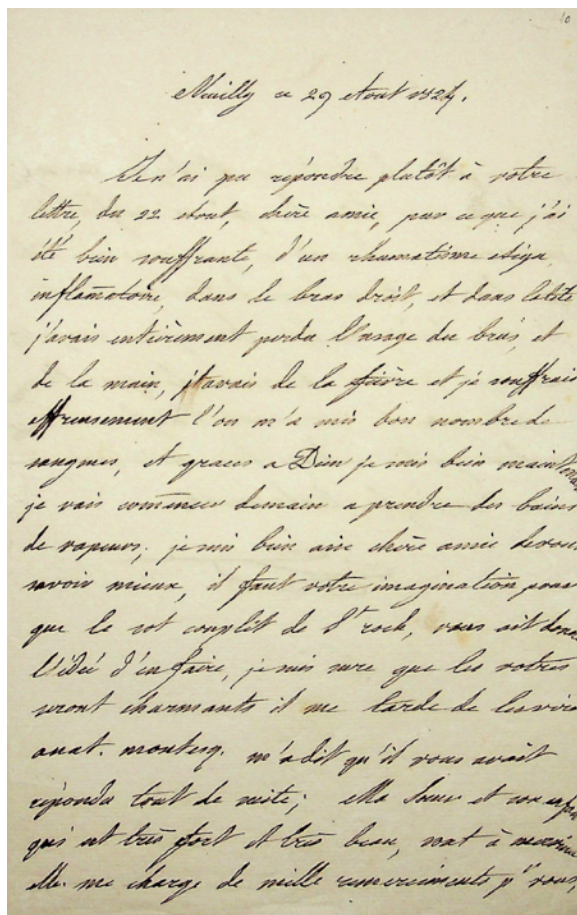 10
Neuilly ce 29 Aout 1824.
Je n'ai pu répondre plutôt à votre
lettre, du 22 Aout, chère amie, par ce que j'ai
été bien souffrante, d'un rhumatisme aigu
inflam̄atoire, dans le bras droit, et dans la tête
j'avais entièrement perdu l'usage du bras, et
de la main, j'avais de la fièvre et je souffrais
affreusement l'on m'a mis bon nombre de
sangsues, et graces a Dieu je suis bien maintenant
je vais com̄encer demain a prendre des bains
de vapeurs; je suis bien aise chère amie de vous
savoir mieux, il faut votre imagination pour
que le sot couplet de St rock, vous ait donné
l'idée d'en faire, je suis sure que les votres
seront charmants il me tarde de les voir
anat. montesq. m'a dit qu'il vous avait
répondu tout de suite; Ma Soeur et son enfant
qui est très fort et très beau, vont à
Elle me charge de mille remerciments pr vous,